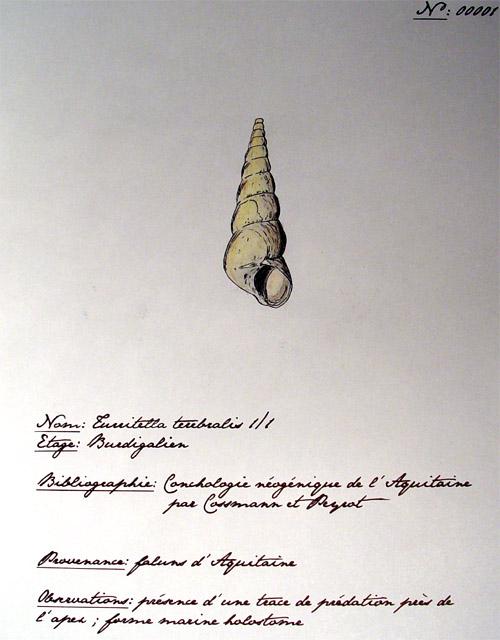 N°: 00001
Nom: Turritella terebralis 1/1
Etage: Burdigalien
Bibliographie: Conchologie néogénique de l'Aquitaine
par Cossmann et Peyrot
Provenance: faluns d'Aquitaine
Observations: présence d'une trace de prédation près de
l'apex ; forme marine holostome